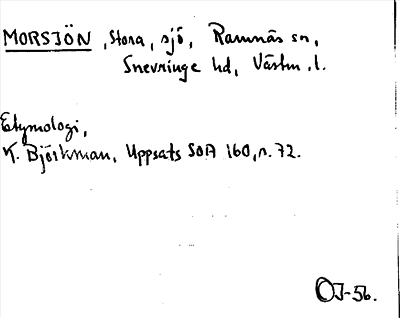 MORSJÖN, Stora, sjö, Ramnäs sn,
Snevringe hd, Västm. l.
Etymologi,
K. Björkman, Uppsats SOA 160, s. 72.
OJ-56.